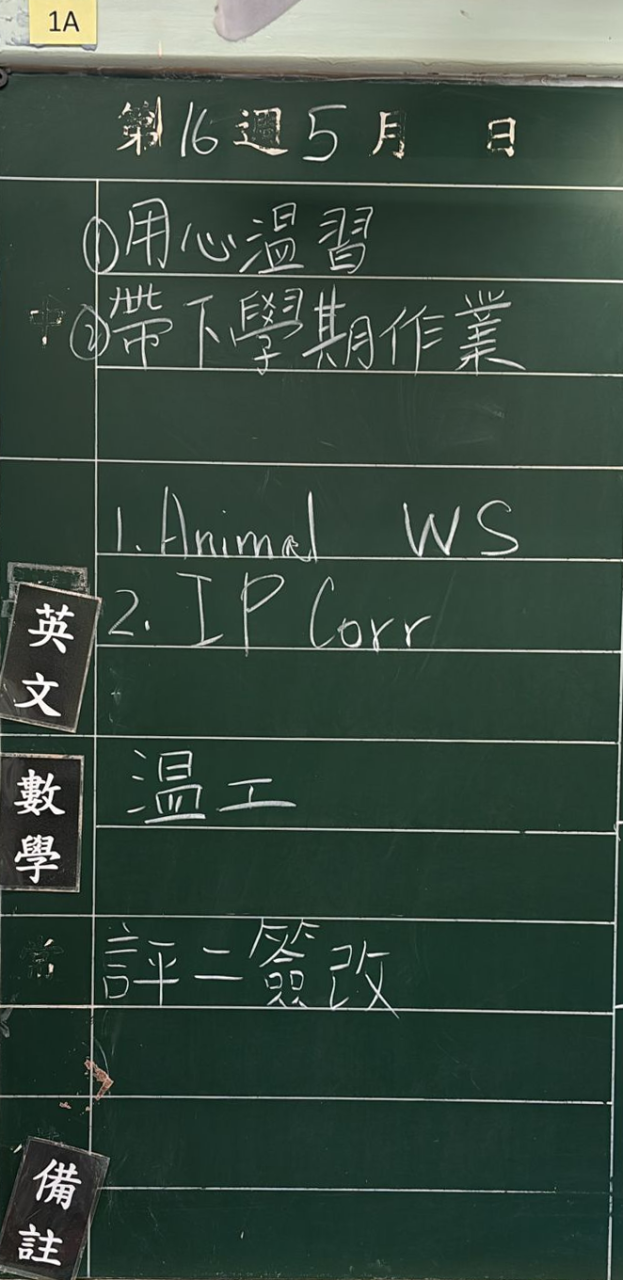 1A
第16週5月 日
中
①用心溫習
②帶下學期作業
英文
1. Animal WS
2. IP Corr
數學
溫工
常
評二簽改
備註